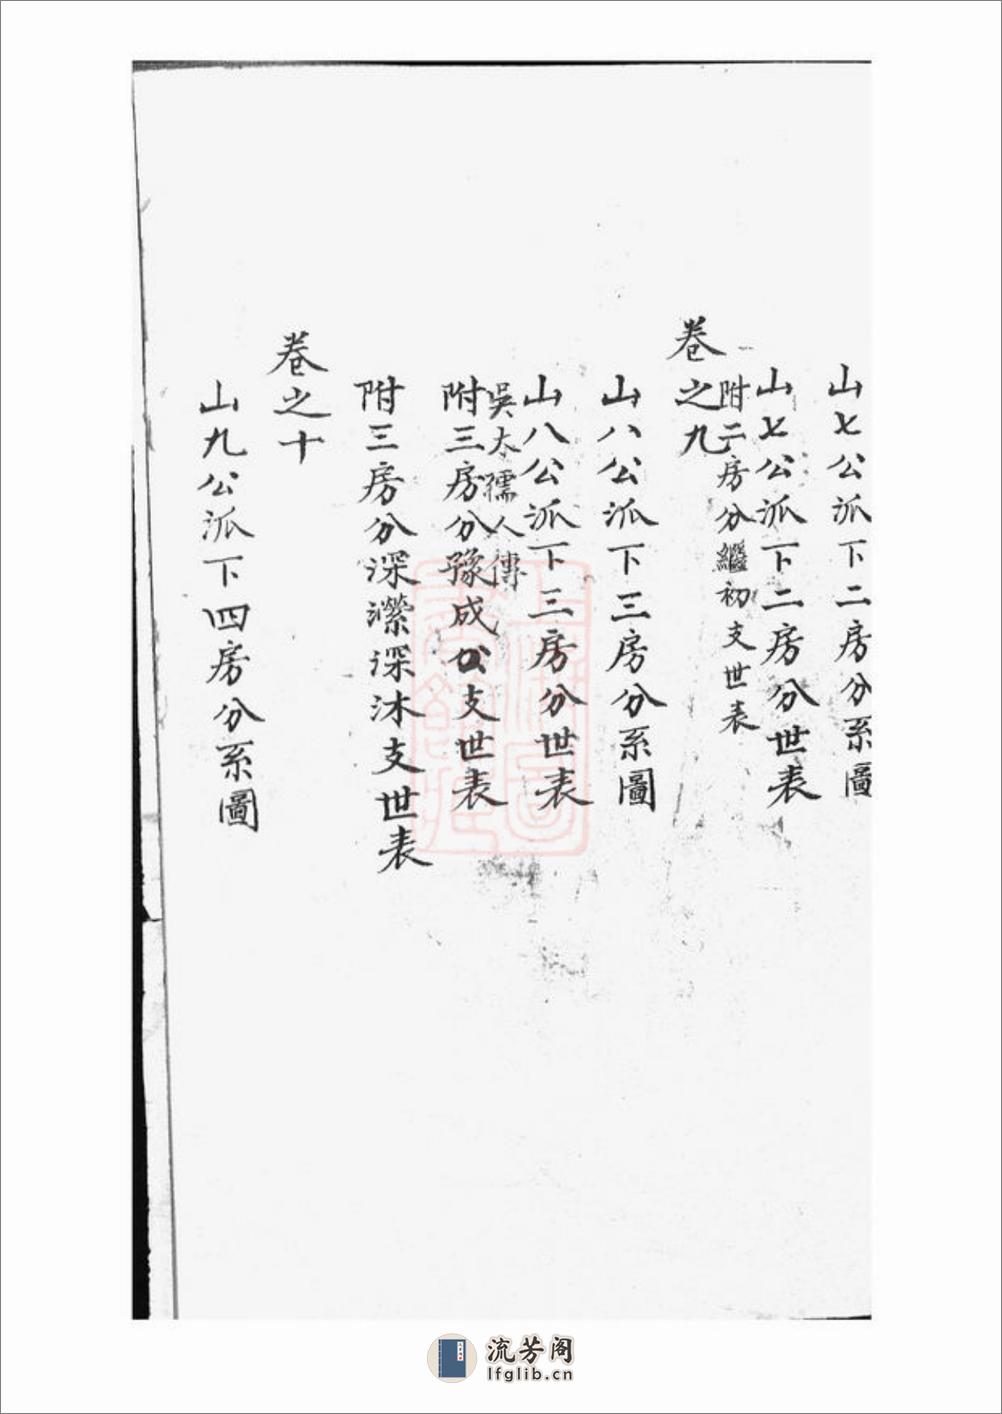 山七公派下二房分系圖
山七公派下二房分世表
附二房分繼初支世表
卷之九
山八公派下三房分系圖
山八公派下三房分世表
吳太孺人傳
附三房分豫成公支世表
附三房分深濼深沐支世表
卷之十
山九公派下四房分系圖
流芳阁
lfglib.cn